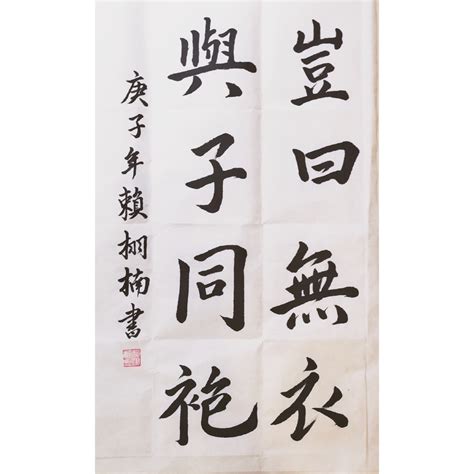 豈曰無衣
與子同袍
庚子年賴栩楠書